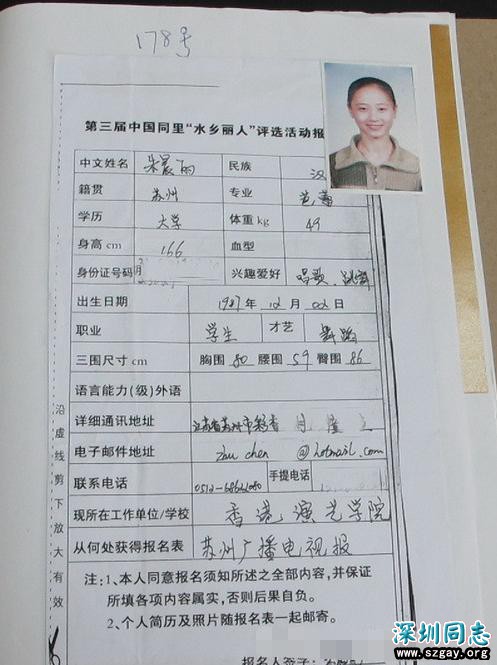 178号
第三届中国同里“水乡丽人”评选活动报
中文姓名 朱晨丽 民族 汉
籍贯 苏州 专业 芭蕾
学历 大学 体重 kg 49
身高 cm 166 血型
身份证号码 兴趣爱好 唱歌、
出生日期 1987年 12月 02日
职业 学生 才艺 舞蹈
三围尺寸 cm 胸围 80 腰围 59 臀围 86
语言能力(级)外语
详细通讯地址 江苏省苏州市
电子邮件地址 zhu chen @hotmail.com
联系电话 手提电话
现所在工作单位/学校 香港演艺学院
从何处获得报名表 苏州广播电视报
注:1、本人同意报名须知所述之全部内容,并保证
所填各项内容属实,否则后果自负。
2、个人简历及照片随报名表一起邮寄。
报名人签字:
沿虚线剪下放大有效
深圳同志
www.szgay.org